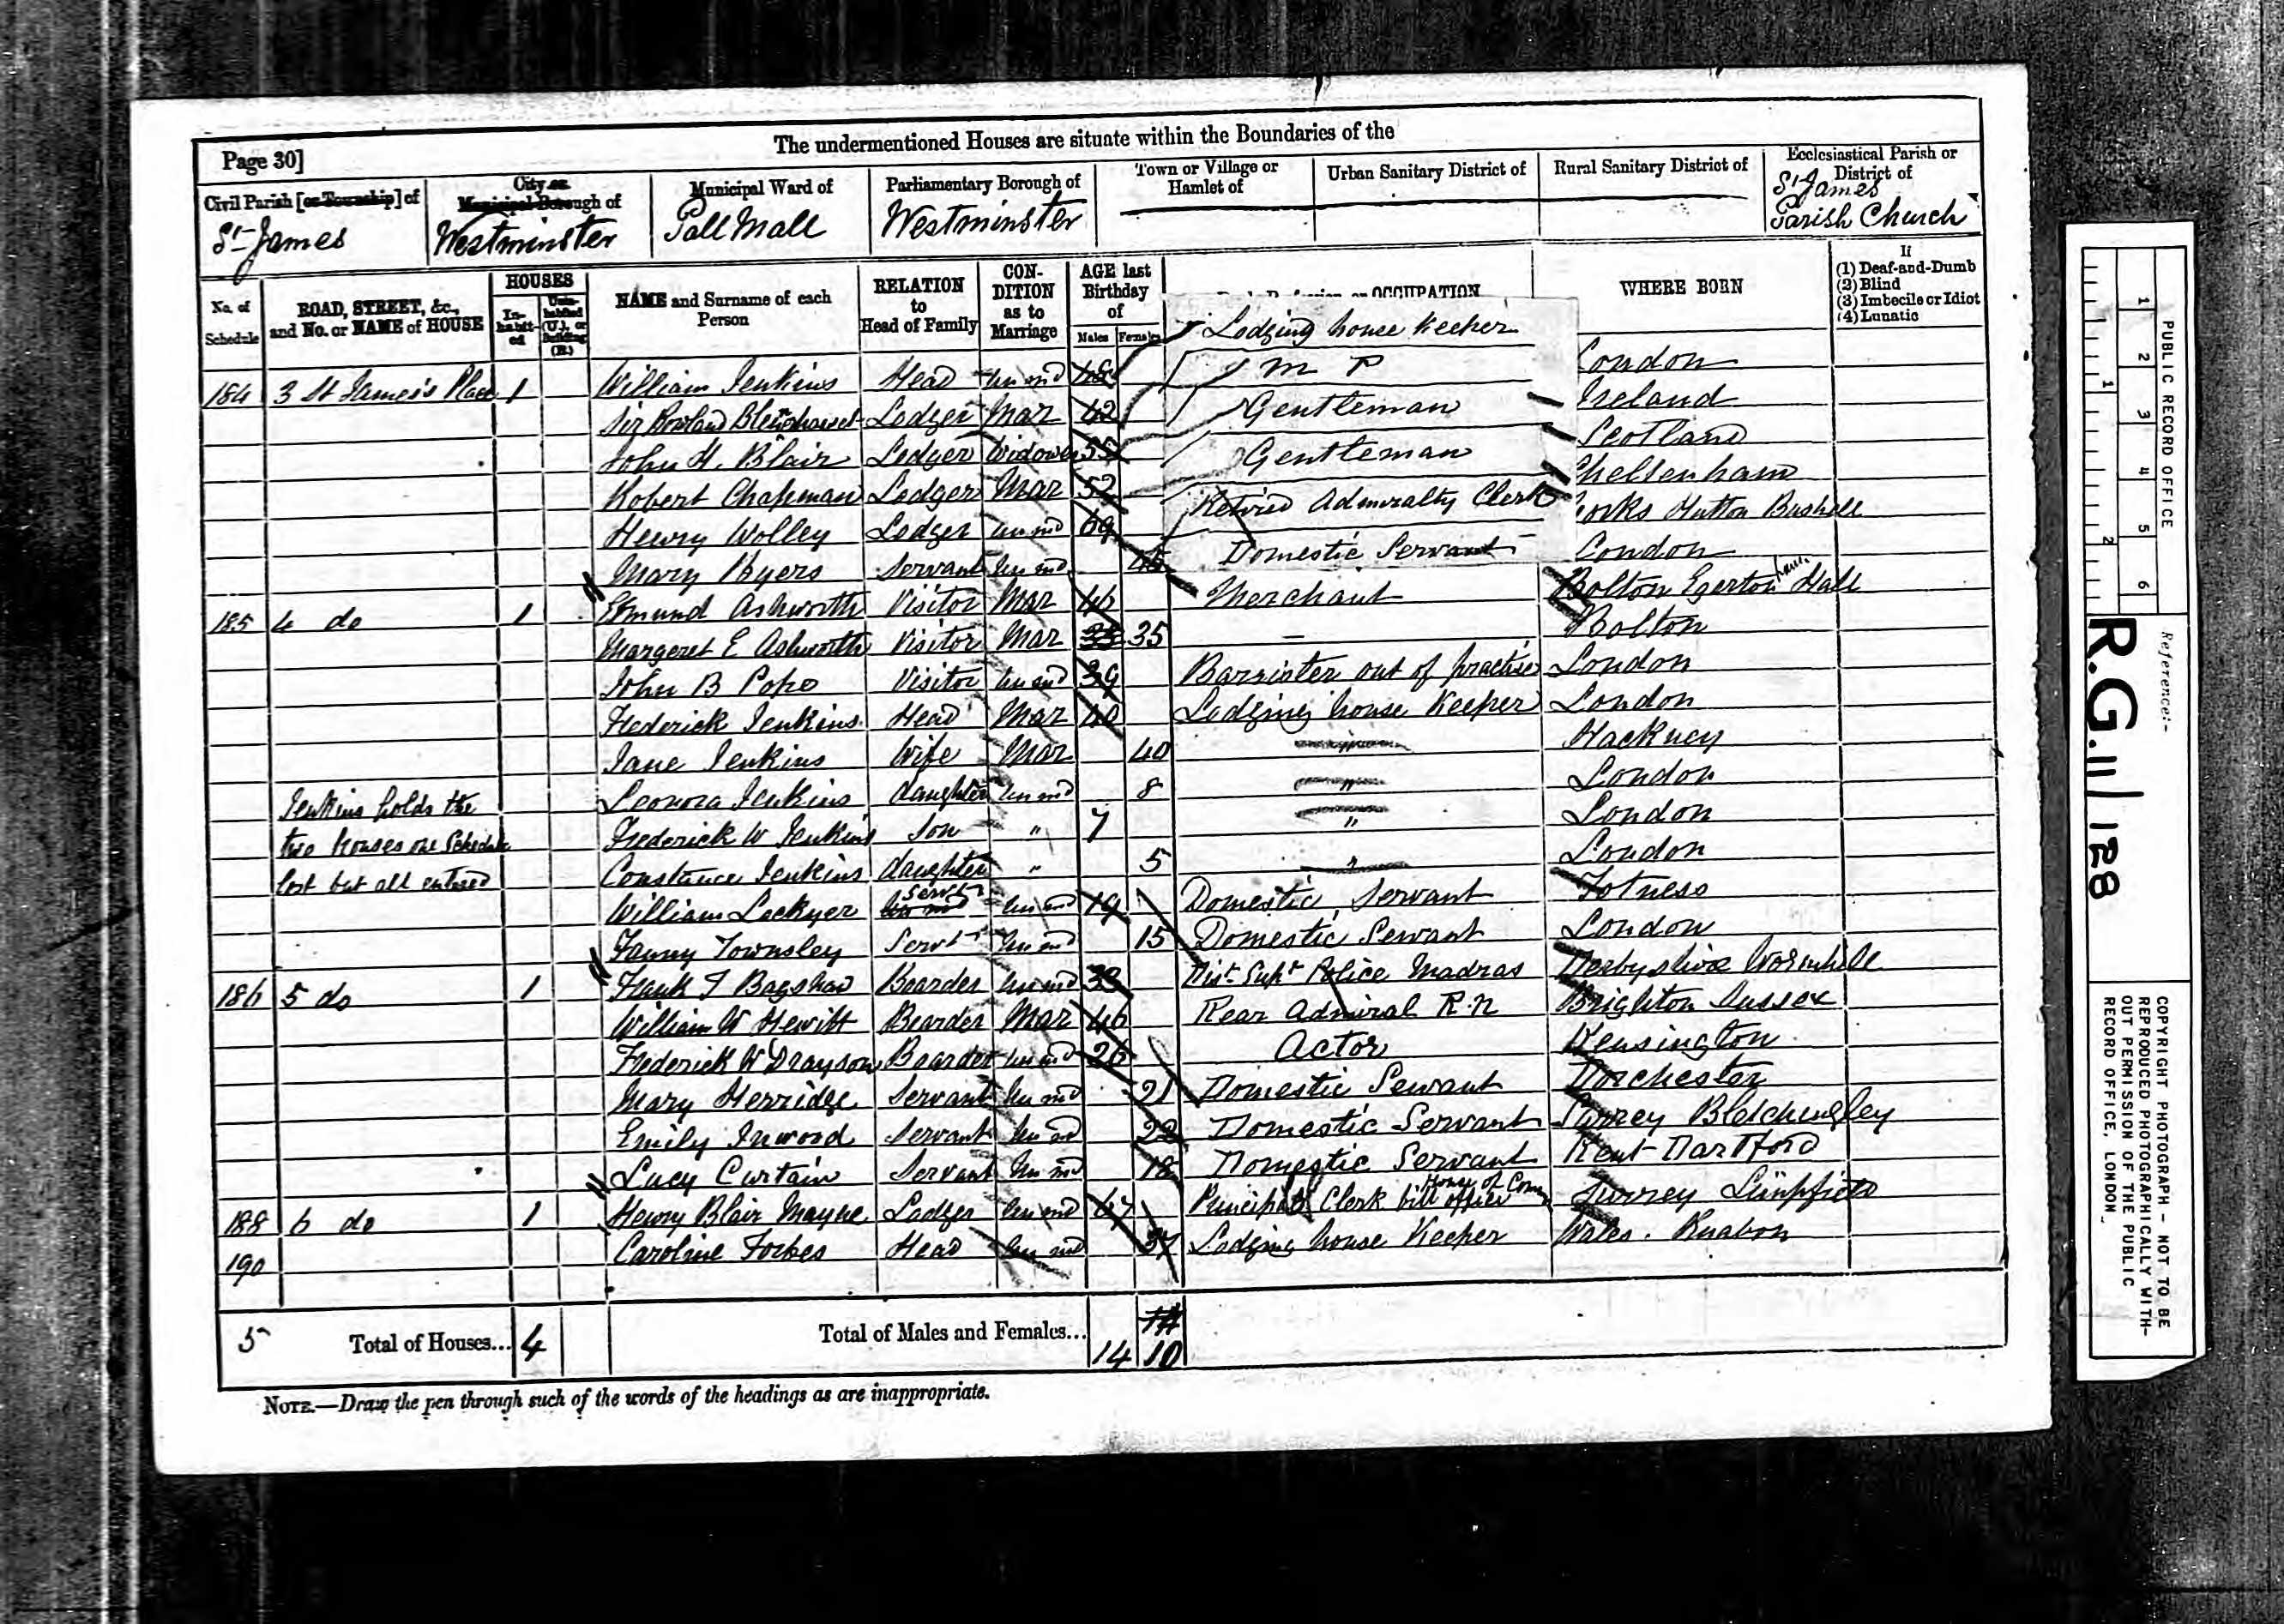 The undermentioned Houses are situate within the Boundaries of the
Page 30]
Civil Parish [or Township] of
St James
City or
Municipal Borough of
Westminster
Municipal Ward of
Pall Mall
Parliamentary Borough of
Westminster
Town or Village or
Hamlet of
Urban Sanitary District of
Rural Sanitary District of
Ecclesiastical Parish or
District of
St James
Parish Church
No. of
Schedule
ROAD, STREET, &c.,
and No. or NAME of HOUSE
HOUSES
In-
habit-
ed
Unin-
habited
(U.), or
Building
(B.)
NAME and Surname of each
Person
RELATION
to
Head of Family
CON-
DITION
as to
Marriage
AGE last
Birthday
of
Males Females
OCCUPATION
WHERE BORN
If
(1) Deaf-and-Dumb
(2) Blind
(3) Imbecile or Idiot
(4) Lunatic
184 3 St James's Place 1 William Jenkins Head Unmd 48 Lodging house Keeper London
Sir Rowland Lodger Mar 62 M P Ireland
John H. Blair Lodger Widower 55 Gentleman Scotland
Robert Chapman Lodger Mar 52 Gentleman Cheltenham
Henry Wolley Lodger Unmd 69 Retired Admiralty Clerk Yorks Hutton Bushell
Mary Servant Unmd Domestic Servant London
185 4 do 1 Edmund Ashworth Visitor Mar 46 Merchant Bolton Egerton Hall
Margeret E Ashworth Visitor Mar 35 35 — Bolton
John B Pope Visitor Unmd 39 Barrister out of practise London
Frederick Jenkins Head Mar 40 Lodging house Keeper London
Jane Jenkins Wife Mar 40 Hackney
Leonora Jenkins daughter Unmd 8 " London
Jenkins holds the
Frederick W Jenkins Son " 7 " London
two houses one Schedule
Constance Jenkins daughter " 5 " London
lost but all entered
William Lockyer Servt Unmd 19 Domestic Servant Totness
Fanny Townsley Servt Unmd 15 Domestic Servant London
186 5 do 1 Frank F Bagshaw Boarder Unmd 33 Dist Supt Police Madras Derbyshire Wormhill
William W Hewitt Boarder Mar 46 Rear Admiral R.N Brighton Sussex
Frederick W Drayson Boarder Unmd 26 Actor Kensington
Mary Herridge Servant Unmd 21 Domestic Servant Dorchester
Emily Inwood Servant Unmd 22 Domestic Servant Surrey Bletchingley
Lucy Curtain Servant Unmd 18 Domestic Servant Kent Dartford
188 6 do 1 Henry Blair Mayne Lodger Unmd 67 Principal Clerk bill office House of Com Surrey Limpsfield
190 Caroline Forbes Head Unmd 37 Lodging house Keeper Wales. Ruabon
5 Total of Houses... 4
Total of Males and Females... 14 10
NOTE.—Draw the pen through such of the words of the headings as are inappropriate.
PUBLIC RECORD OFFICE
1 2 3 4 5 6
1 2
Reference:-
R.G. 11/128
COPYRIGHT PHOTOGRAPH - NOT TO BE
REPRODUCED PHOTOGRAPHICALLY WITH-
OUT PERMISSION OF THE PUBLIC
RECORD OFFICE, LONDON.